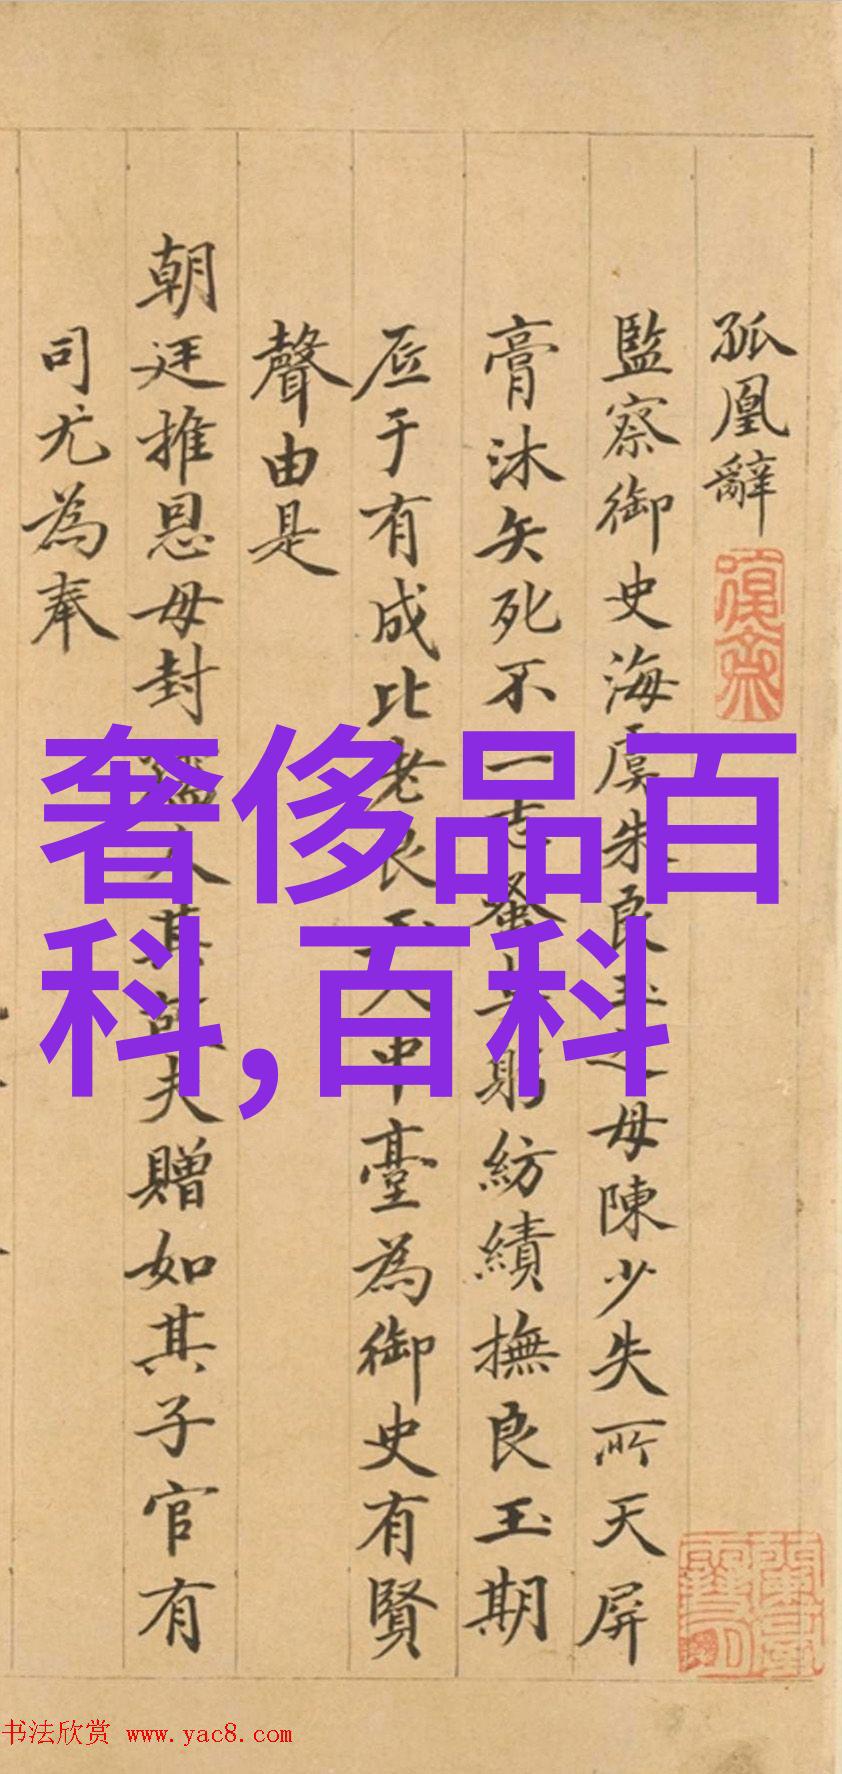 孤凰辭
復齋
監察御史海虞朱良玉之母陳少失所天屏
膏沐矢死不志蚤躬紡績撫良玉期
于有成比老良玉入中臺為御史有賢
聲由是
朝廷推恩母封孺人其夫贈如其子官有
司尤為奉
奢侈品百
科,百科
书法欣赏 www.yac8.com